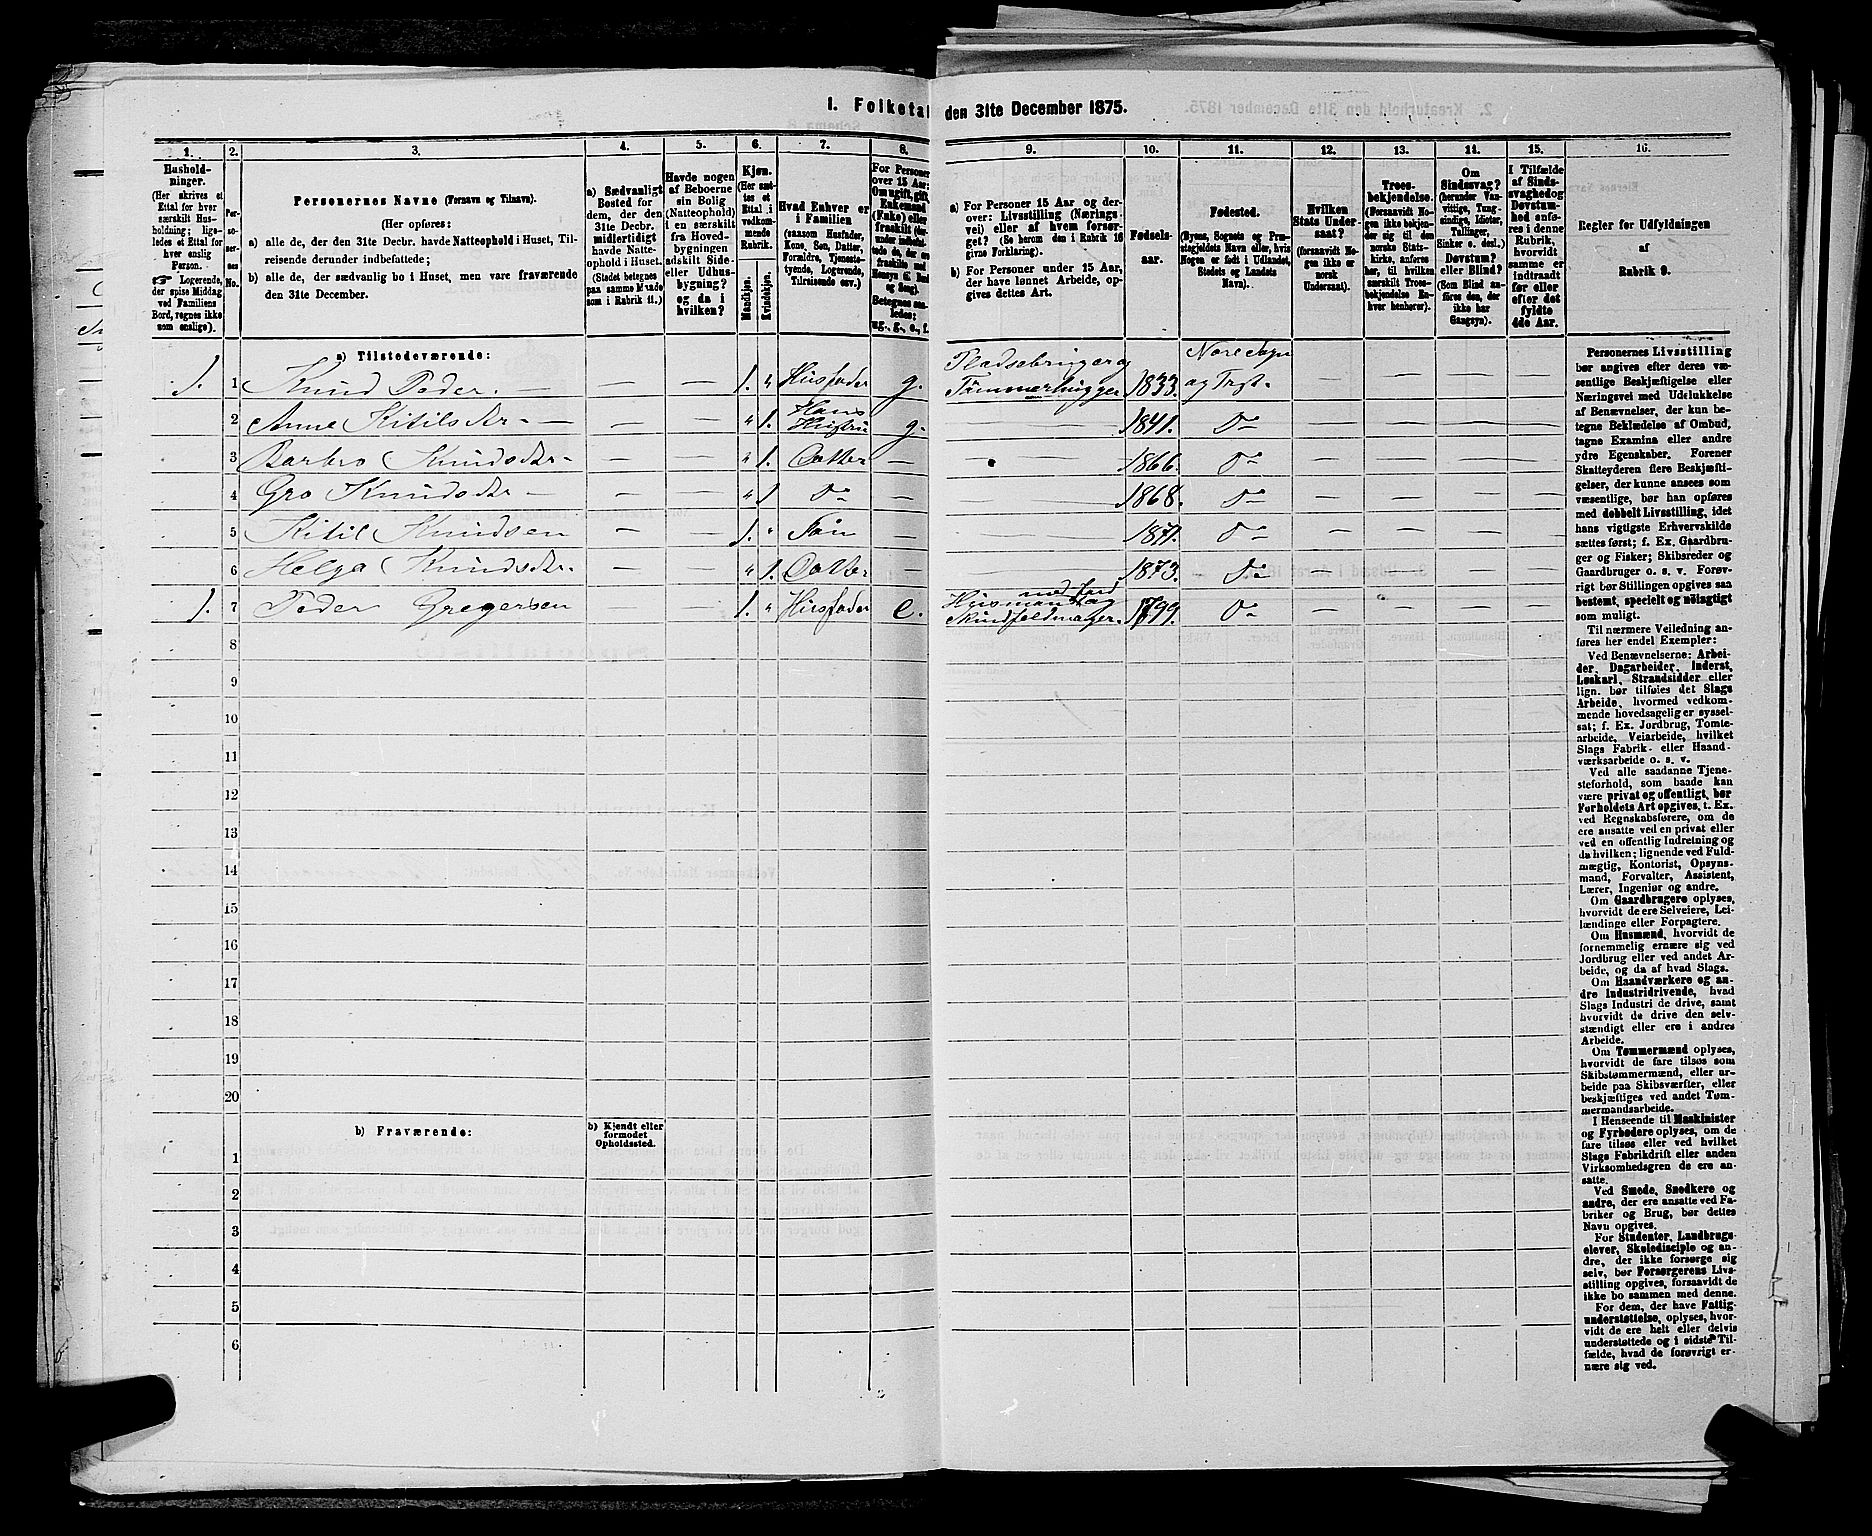 1. Folketal den 31te December 1875.
1. 2. 3. 4. 5. 6. 7. 8. 9. 10. 11. 12. 13. 14. 15. 16.
Hushold-
ninger.
(Her skrives et
Ettal for hver
særskilt Hus-
holdning; lige-
ledes et Ettal for
hver enslig
Person.
☞ Logerende,
der spise Middag
ved Familiens
Bord, regnes ikke
som enslige).
Per-
so-
ner-
nes
No.
Personernes Navne (Fornavn og Tilnavn).
(Her opføres:
a) alle de, der den 31te Decbr. havde Natteophold i Huset, Til-
reisende derunder indbefattede;
b) alle de, der sædvanlig bo i Huset, men vare fraværende
den 31te December.
a) Sædvanligt
Bosted for
dem, der den
31te Decbr.
midlertidigt
havde Natte-
ophold i Huset.
(Stedet betegnes
paa samme Maade
som i Rubrik 11.)
Havde nogen
af Beboerne
sin Bolig
(Natteophold)
i en særskilt
fra Hoved-
bygningen
adskilt Side-
eller Udhus-
bygning?
og da i
hvilken?
Kjøn.
(Her sæt-
tes et
Ettal i
vedkom-
mende
Rubrik.
Mandkjøn.
Kvindekjøn.
Hvad Enhver er
i Familien
(saasom Husfader,
Kone, Søn, Datter,
Forældre, Tjeneste-
tyende, Logerende,
Tilreisende osv.)
For Personer
over 15 Aar:
Om ugift, gift,
Enkemand
(Enke) eller
fraskilt
Betegnes saa-
ledes:
ug., g., e., f.
a) For Personer 15 Aar og der-
over: Livsstilling (Nærings-
vei) eller af hvem forsør-
get? (Se herom den i Rubrik 16
givne Forklaring).
b) For Personer under 15 Aar,
der have lønnet Arbeide, op-
gives dettes Art.
Fødsels-
aar.
Fødested.
(Byens, Sognets og Præ-
stegjeldets Navn eller, hvis
Nogen er født i Udlandet,
Stedets og Landets
Navn).
Hvilken
Stats Under-
saat?
(forsaavidt No-
gen ikke er
norsk
Undersaat).
Troes-
bekjendelse.
(Forsaavidt No-
gen ikke bekjen-
der sig til den
norske Stats-
kirke, anføres
her, til hvilken
særskilt Troes-
bekjendelse En-
hver henhører).
Om
Sindssvag?
(herunder Van-
vittige, Tung-
sindige, Idioter,
Tullinger,
Sinker o. desl.)
Døvstum?
eller Blind?
(Som Blind an-
føres den, der
ikke har
Gangsyn).
I Tilfælde
af Sinds-
svaghed og
Døvstum-
hed anfø-
res i denne
Rubrik,
hvorvidt
samme er
indtraadt
før eller
efter det
fyldte
4de Aar.
Regler for Udfyldningen
af
Rubrik 9.
a) Tilstedeværende:
1. 1 Knud Peder. — — — 1. " Husfader g. Pladsebruger og Tömmerhugger 1833. Nore Sogn og Prgt. — — — —
2 Anne Kitilsdtr. — — — " 1. Hans Hustru g. — 1841. Do — — — —
3 Barbro Knudsdtr. — — " 1. Datter — — 1866. Do — — — —
4 Gro Knudsdtr — — — " 1 Do — — 1868. Do — — — —
5 Kitil Knudsen — — 1. " Sön — — 1871. Do — — — —
6 Helga Knudsdtr. — — " 1. Datter — — 1873. Do — — — —
1. 7 Peder Gregersen — — 1. " Husfader e. Husmand med Jord og Skindfeldmager. 1799. Do — — — —
8
9
10
11
12
13
14
15
16
17
18
19
20
b) Fraværende:
b) Kjendt eller
formodet
Opholdssted.
1
2
3
4
5
6
Personernes Livsstilling
bør angives efter deres væ-
sentlige Beskjæftigelse eller
Næringsvei med Udelukkelse
af Benævnelser, der kun be-
tegne Beklædelse af Ombud,
tagne Examina eller andre
ydre Egenskaber. Forener
Skatteyderen flere Beskjæfti-
gelser, der kunne ansees som
væsentlige, bør han opføres
med dobbelt Livsstilling, idet
hans vigtigste Erhvervskilde
sættes først; f. Ex. Gaardbru-
ger og Fisker; Skibsreder og
Gaardbruger o. s. v. Forøv-
rigt bør Stillingen opgives saa
bestemt, specielt og nøiagtigt
som muligt.
Til nærmere Veiledning an-
føres her endel Exempler:
Ved Benævnelserne: Arbei-
der, Dagarbeider, Inderst,
Løskarl, Strandsidder eller
lign. bør tilføies det Slags
Arbeide, hvormed vedkom-
mende hovedsagelig er syssel-
sat; f. Ex. Jordbrug, Tomte-
arbeide, Veiarbeide, hvilket
Slags Fabrik- eller Haand-
værksarbeide o. s. v.
Ved alle saadanne Tjene-
steforhold, som baade kan
være privat og offentligt, bør
Forholdets Art opgives, t. Ex.
ved Regnskabsførere, om de
ere ansatte ved en privat eller
ved en offentlig Indretning og
da hvilken; lignende ved Fuld-
mægtig, Kontorist, Opsyns-
mand, Forvalter, Assistent,
Lærer, Ingeniør og andre.
Om Gaardbrugere oplyses,
hvorvidt de ere Selveiere, Lei-
lændinge eller Forpagtere.
Om Husmænd, hvorvidt de
fornemmelig ernære sig ved
Jordbrug eller ved andet Ar-
beide, og da af hvad Slags.
Om Haandværkere og an-
dre Industridrivende, hvad
Slags Industri de drive, samt
hvorvidt de drive den selv-
stændigt eller ere i andres
Arbeide.
Om Tømmermænd oplyses,
hvorvidt de fare tilsøs som
Skibstømmermænd, eller ar-
beide paa Skibsværfter, eller
beskjæftiges ved andet Tøm-
mermandsarbeide.
I Henseende til Maskinister
og Fyrbødere oplyses, om de
fare tilsøs eller ved hvilket
Slags Fabrikdrift eller anden
Virksomhedsgren de ere an-
satte.
Ved Smede, Snedkere og
andre, der ere ansatte ved Fa-
briker og Brug, bør dettes
Navn opgives.
For Studenter, Landbrugs-
elever, Skoledisciple og an-
dre, der ikke forsørge sig
selv, bør Forsørgerens Livs-
stilling opgives, forsaavidt de
ikke bo sammen med denne.
For dem, der have Fattig-
understøttelse, oplyses, hvor-
vidt de ere helt eller delvis
understøttede og i sidste Til-
fælde, hvad de forøvrigt er-
nære sig ved.